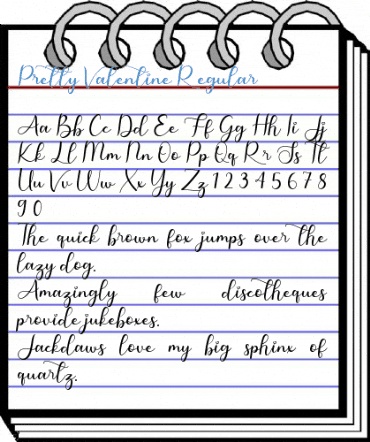 Pretty Valentine Regular
Aa Bb Cc Dd Ee Ff Gg Hh Ii Jj
Kk Ll Mm Nn Oo Pp Qq Rr Ss Tt
Uu Vv Ww Xx Yy Zz 1 2 3 4 5 6 7 8
9 0
The quick brown fox jumps over the
lazy dog.
Amazingly few discotheques
provide jukeboxes.
Jackdaws love my big sphinx of
quartz.